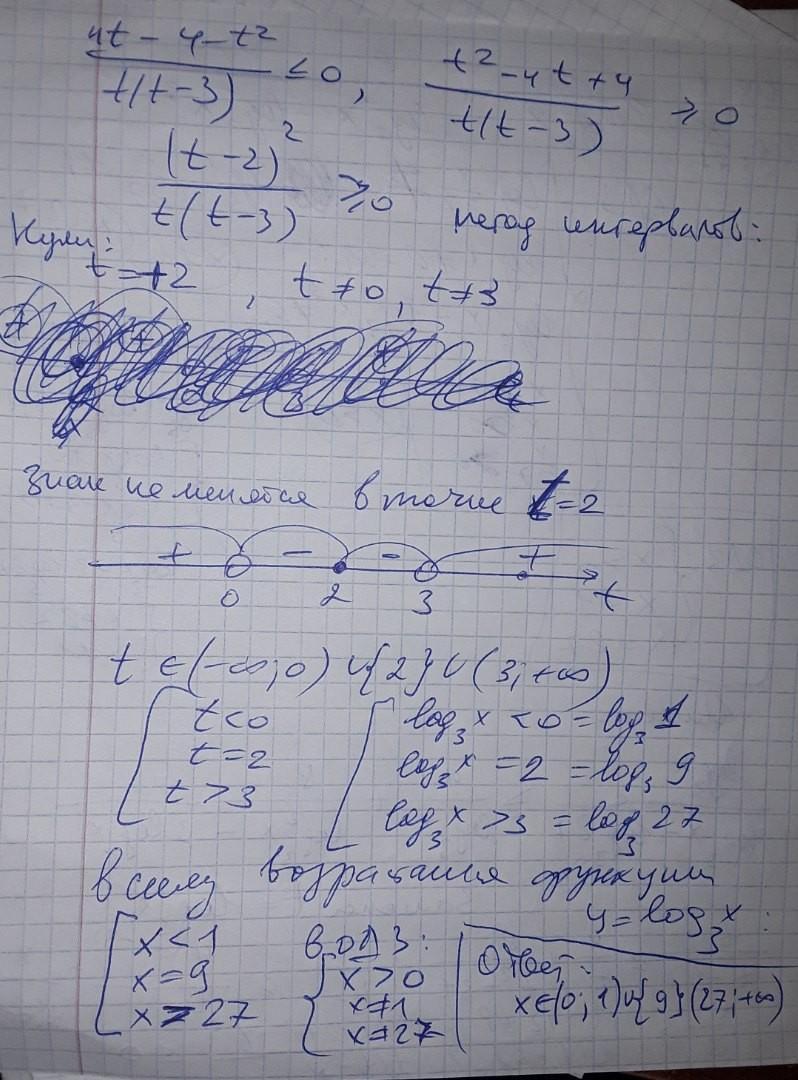 4t - 4 - t² / t(t-3) ≤ 0, t² - 4t + 4 / t(t-3) ≥ 0
(t-2)² / t(t-3) ≥ 0 метод интервалов:
Нули:
t = +2, t ≠ 0, t ≠ 3
Знак не меняется в точке t = 2
+ - - +
0 2 3 t
t ∈ (-∞; 0) ∪ {2} ∪ (3; +∞)
[ t < 0 [ log₃ x < 0 = log₃ 1
t = 2 log₃ x = 2 = log₃ 9
t > 3 log₃ x > 3 = log₃ 27
В силу возрастания функции
y = log₃ x :
[ x < 1 В ОДЗ: Ответ:
x = 9 { x > 0 x ∈ (0; 1) ∪ {9} (27; +∞)
x > 27 x ≠ 1
x ≠ 27